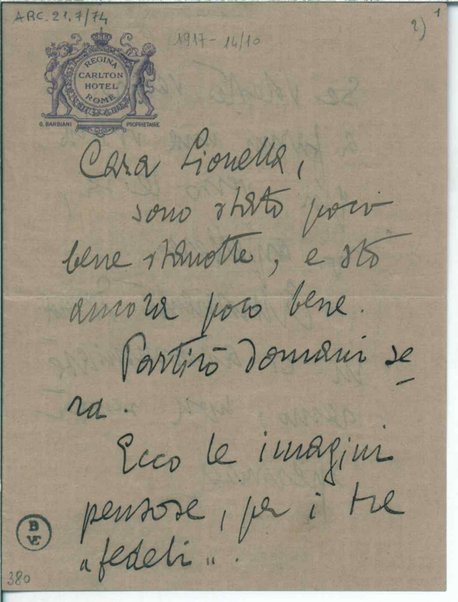 ARC. 21.7/74
1
2)
(1917-14/10
REGINA
CARLTON
HOTEL
ROME
G. BARBIANI PROPRIETAIRE
Cara Lionella,
sono stato poco
bene stanotte, e sto
ancora poco bene.
Partirò domani se
ra.
Ecco le imagini
pensose, per i tre
"fedeli".
B
VE
380